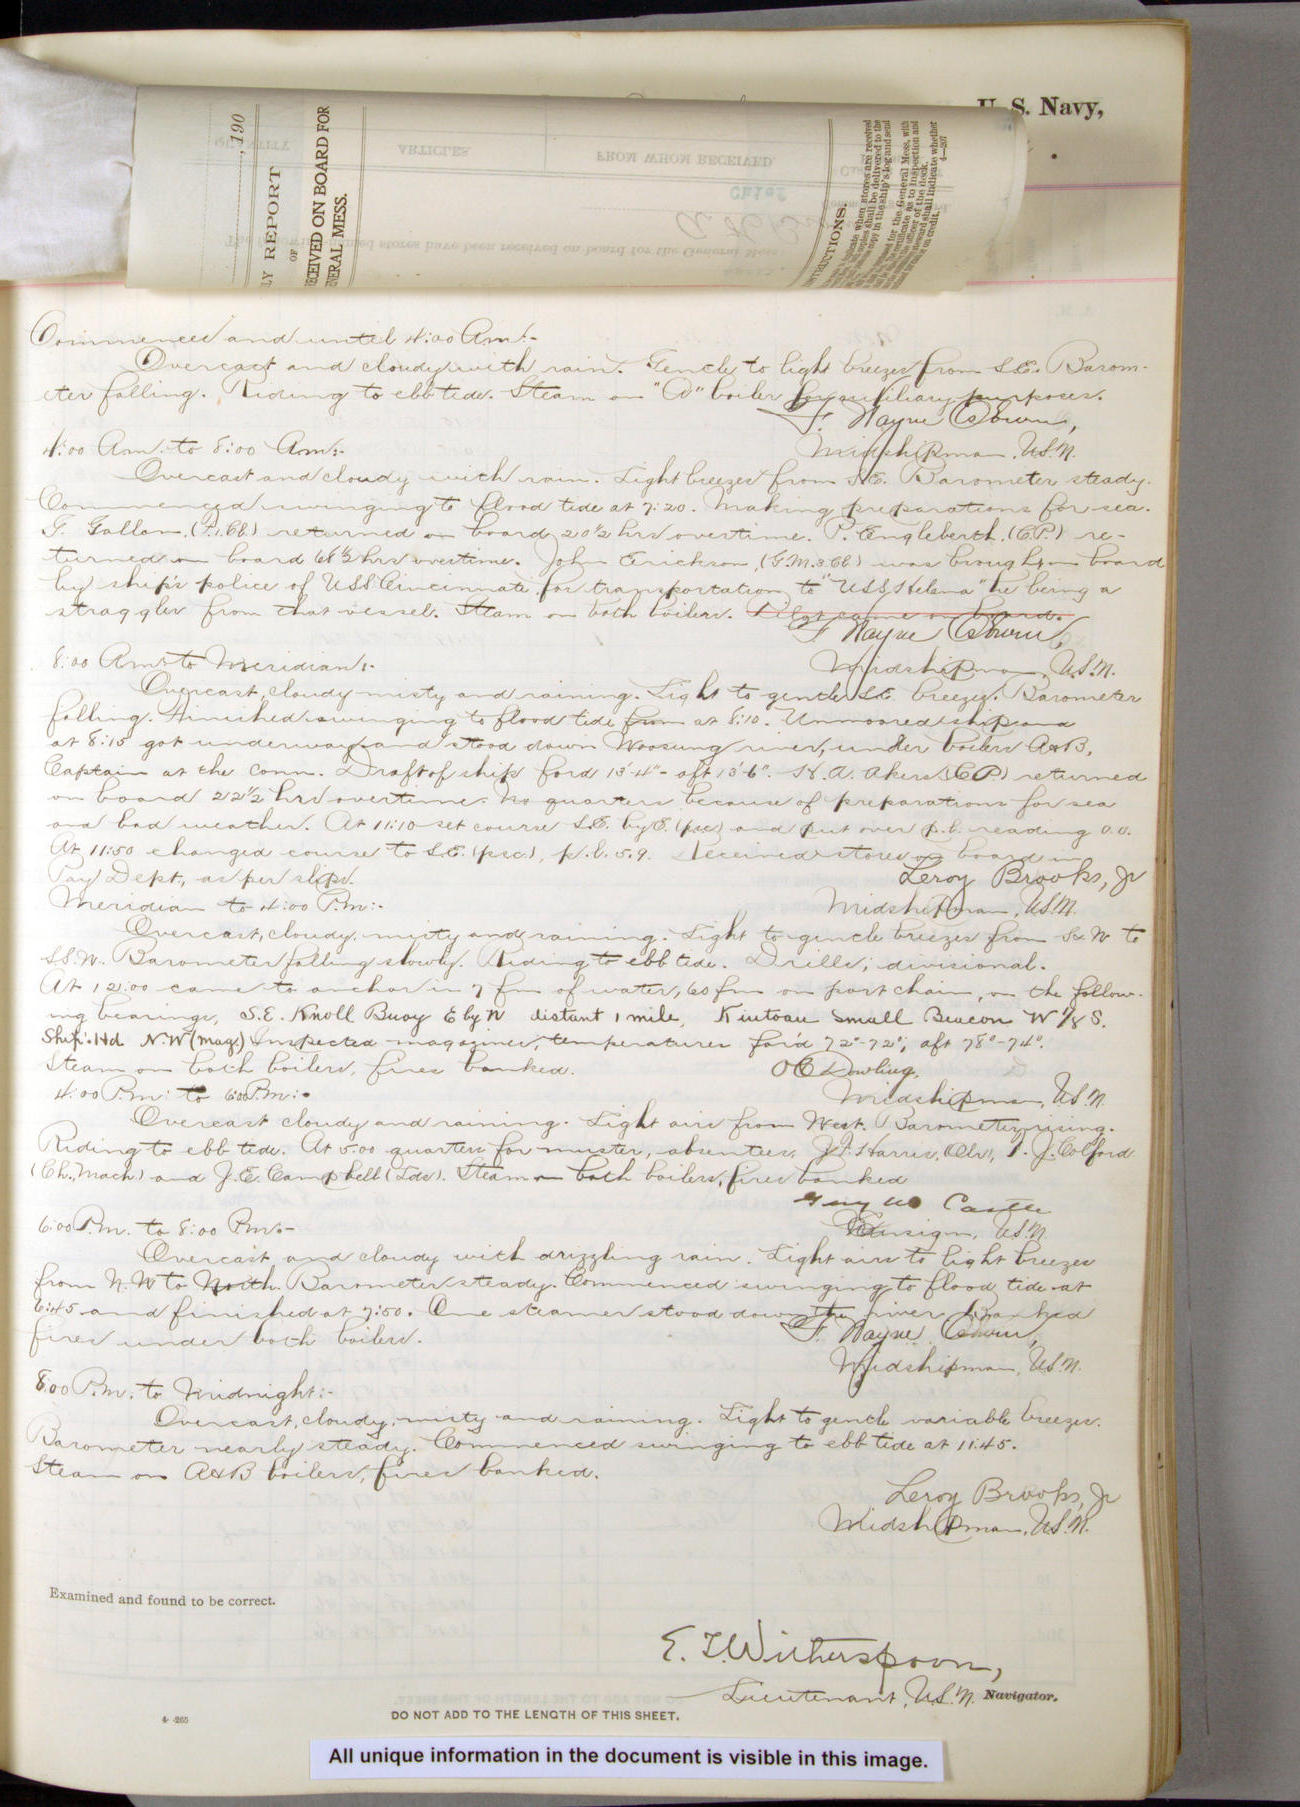 U. S. Navy,
, 190
LY REPORT
OF
CEIVED ON BOARD FOR
NERAL MESS.
QUANTITY
ARTICLES
FROM WHOM RECEIVED
Chief
STRUCTIONS.
4—207
Commenced and until 4:00 Am:-
Overcast and cloudy with rain. Gentle to light breezes from S.E. Barom-
eter falling. Riding to ebb tide. Steam on boiler for auxiliary purposes.
F. Wayne Osburn,
Midshipman, U.S.N.
4:00 Am. to 8:00 Am:-
Overcast and cloudy with rain. Light breezes from S.E. Barometer steady.
Commenced swinging to flood tide at 7:20. Making preparations for sea.
returned on board 20½ hrs overtime. P. Engleberth, (C.P.) re-
turned on board hrs overtime. John Erickson, (G.M.3Cl) was brought on board
by ship's police of USS Cincinnati for transportation to "USS Helena" he being a
straggler from that vessel. Steam on both boilers. Pilot came on board.
F Wayne Osburn,
Midshipman, U.S.N.
8:00 Am. to Meridian:-
Overcast, cloudy misty and raining. Light to gentle S.E. breezes. Barometer
falling. Finished swinging to flood tide from at 8:10. Unmoored ship and
at 8:15 got underway and stood down Woosung river, under boilers A&B,
Captain at the conn. Draft of ship for'd 13'4"- aft 13'6". H. A. Akers (C.P.) returned
on board 22½ hrs overtime. No quarters because of preparations for sea
and bad weather. At 11:10 set course S.E. by E. (psc) and put over p.l. reading 0.0.
At 11:50 changed course to S.E. (psc), p.l. 5.9. Received stores on board in
Pay Dept., as per slips.
Leroy Brooks, Jr
Midshipman, U.S.N.
Meridian to 4:00 P.m:-
Overcast, cloudy, misty and raining. Light to gentle breezes from to
S.S.W. Barometer falling slowly. Riding to ebb tide. Drills; divisional.
At 12:00 came to anchor in 7 fms of water, 60 fms on port chain, on the follow-
ing bearings, S.E. Knoll Buoy E by N distant 1 mile, Kiutoan Small Beacon W ⅞ S.
Ship's Hd N.W (mag.) Inspected magazines, temperatures for'd 72°-72°; aft 78°-74°.
Steam on both boilers, fires banked.
O C Dowling,
Midshipman, U.S.N.
4:00 P.m: to 6:00 P.m:-
Overcast cloudy and raining. Light airs from West. Barometer rising.
Riding to ebb tide. At 5.00 quarters for muster, absentees, Harris, J. Colford
(Ch. Mach.) and J. E. Campbell (Lds). Steam on both boilers, fires banked
Guy W Castle
Ensign, U.S.N.
6:00 P.m. to 8:00 P.m:-
Overcast and cloudy with drizzling rain. Light airs to light breezes
from N.W to North. Barometer steady. Commenced swinging to flood tide at
6:45 and finished at 7:50. One steamer stood down the river. Banked
fires under both boilers.
F. Wayne Osburn,
Midshipman, U.S.N.
8:00 P.m. to Midnight:-
Overcast, cloudy, misty and raining. Light to gentle variable breezes.
Barometer nearly steady. Commenced swinging to ebb tide at 11:45.
Steam on A&B boilers, fires banked.
Leroy Brooks, Jr
Midshipman, U.S.N.
Examined and found to be correct.
E. T. Witherspoon,
Lieutenant, U.S.N. Navigator.
4—265
DO NOT ADD TO THE LENGTH OF THIS SHEET.
All unique information in the document is visible in this image.